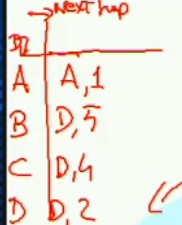 →Next hop
A A,1
B D,5
C D,4
D D,2